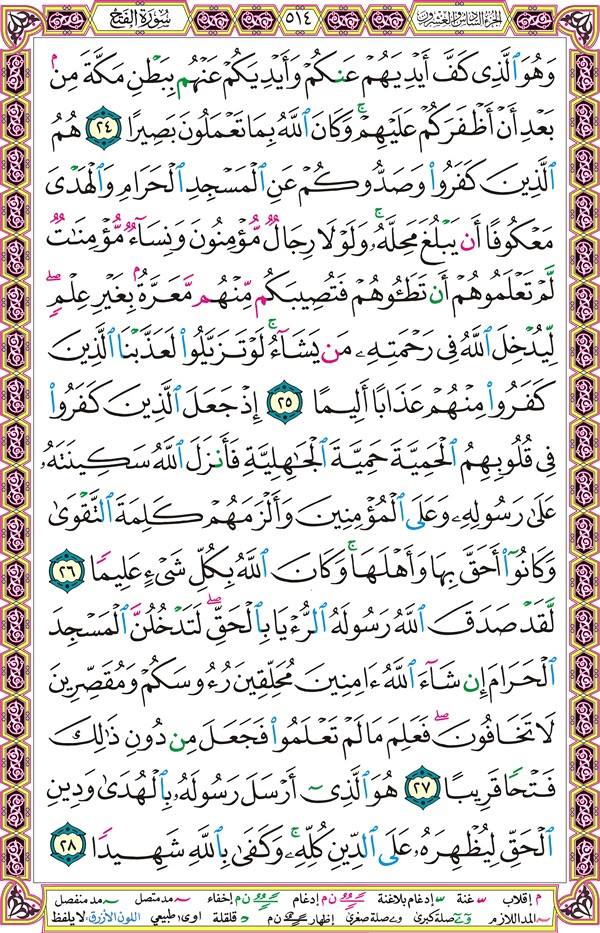 الجزء السادس والعشرون ٥١٤ سورة الفتح
وَهُوَ ٱلَّذِى كَفَّ أَيْدِيَهُمْ عَنكُمْ وَأَيْدِيَكُمْ عَنْهُم بِبَطْنِ مَكَّةَ مِنۢ
بَعْدِ أَنْ أَظْفَرَكُمْ عَلَيْهِمْ ۚ وَكَانَ ٱللَّهُ بِمَا تَعْمَلُونَ بَصِيرًا ٢٤ هُمُ
ٱلَّذِينَ كَفَرُوا۟ وَصَدُّوكُمْ عَنِ ٱلْمَسْجِدِ ٱلْحَرَامِ وَٱلْهَدْىَ
مَعْكُوفًا أَن يَبْلُغَ مَحِلَّهُۥ ۚ وَلَوْلَا رِجَالٌ مُّؤْمِنُونَ وَنِسَآءٌ مُّؤْمِنَٰتٌ
لَّمْ تَعْلَمُوهُمْ أَن تَطَـُٔوهُمْ فَتُصِيبَكُم مِّنْهُم مَّعَرَّةٌۢ بِغَيْرِ عِلْمٍ ۖ
لِّيُدْخِلَ ٱللَّهُ فِى رَحْمَتِهِۦ مَن يَشَآءُ ۚ لَوْ تَزَيَّلُوا۟ لَعَذَّبْنَا ٱلَّذِينَ
كَفَرُوا۟ مِنْهُمْ عَذَابًا أَلِيمًا ٢٥ إِذْ جَعَلَ ٱلَّذِينَ كَفَرُوا۟
فِى قُلُوبِهِمُ ٱلْحَمِيَّةَ حَمِيَّةَ ٱلْجَٰهِلِيَّةِ فَأَنزَلَ ٱللَّهُ سَكِينَتَهُۥ
عَلَىٰ رَسُولِهِۦ وَعَلَى ٱلْمُؤْمِنِينَ وَأَلْزَمَهُمْ كَلِمَةَ ٱلتَّقْوَىٰ
وَكَانُوٓا۟ أَحَقَّ بِهَا وَأَهْلَهَا ۚ وَكَانَ ٱللَّهُ بِكُلِّ شَىْءٍ عَلِيمًا ٢٦
لَّقَدْ صَدَقَ ٱللَّهُ رَسُولَهُ ٱلرُّءْيَا بِٱلْحَقِّ ۖ لَتَدْخُلُنَّ ٱلْمَسْجِدَ
ٱلْحَرَامَ إِن شَآءَ ٱللَّهُ ءَامِنِينَ مُحَلِّقِينَ رُءُوسَكُمْ وَمُقَصِّرِينَ
لَا تَخَافُونَ ۖ فَعَلِمَ مَا لَمْ تَعْلَمُوا۟ فَجَعَلَ مِن دُونِ ذَٰلِكَ
فَتْحًا قَرِيبًا ٢٧ هُوَ ٱلَّذِىٓ أَرْسَلَ رَسُولَهُۥ بِٱلْهُدَىٰ وَدِينِ
ٱلْحَقِّ لِيُظْهِرَهُۥ عَلَى ٱلدِّينِ كُلِّهِۦ ۚ وَكَفَىٰ بِٱللَّهِ شَهِيدًا ٢٨
م إقلاب غنة إدغام بلاغنة ن م إدغام ن م إخفاء مد متصل مد منفصل
المد اللازم صلة كبرى صلة صغرى إظهار ن م قلقلة اوى طبيعي اللون الأزرق لا يلفظ